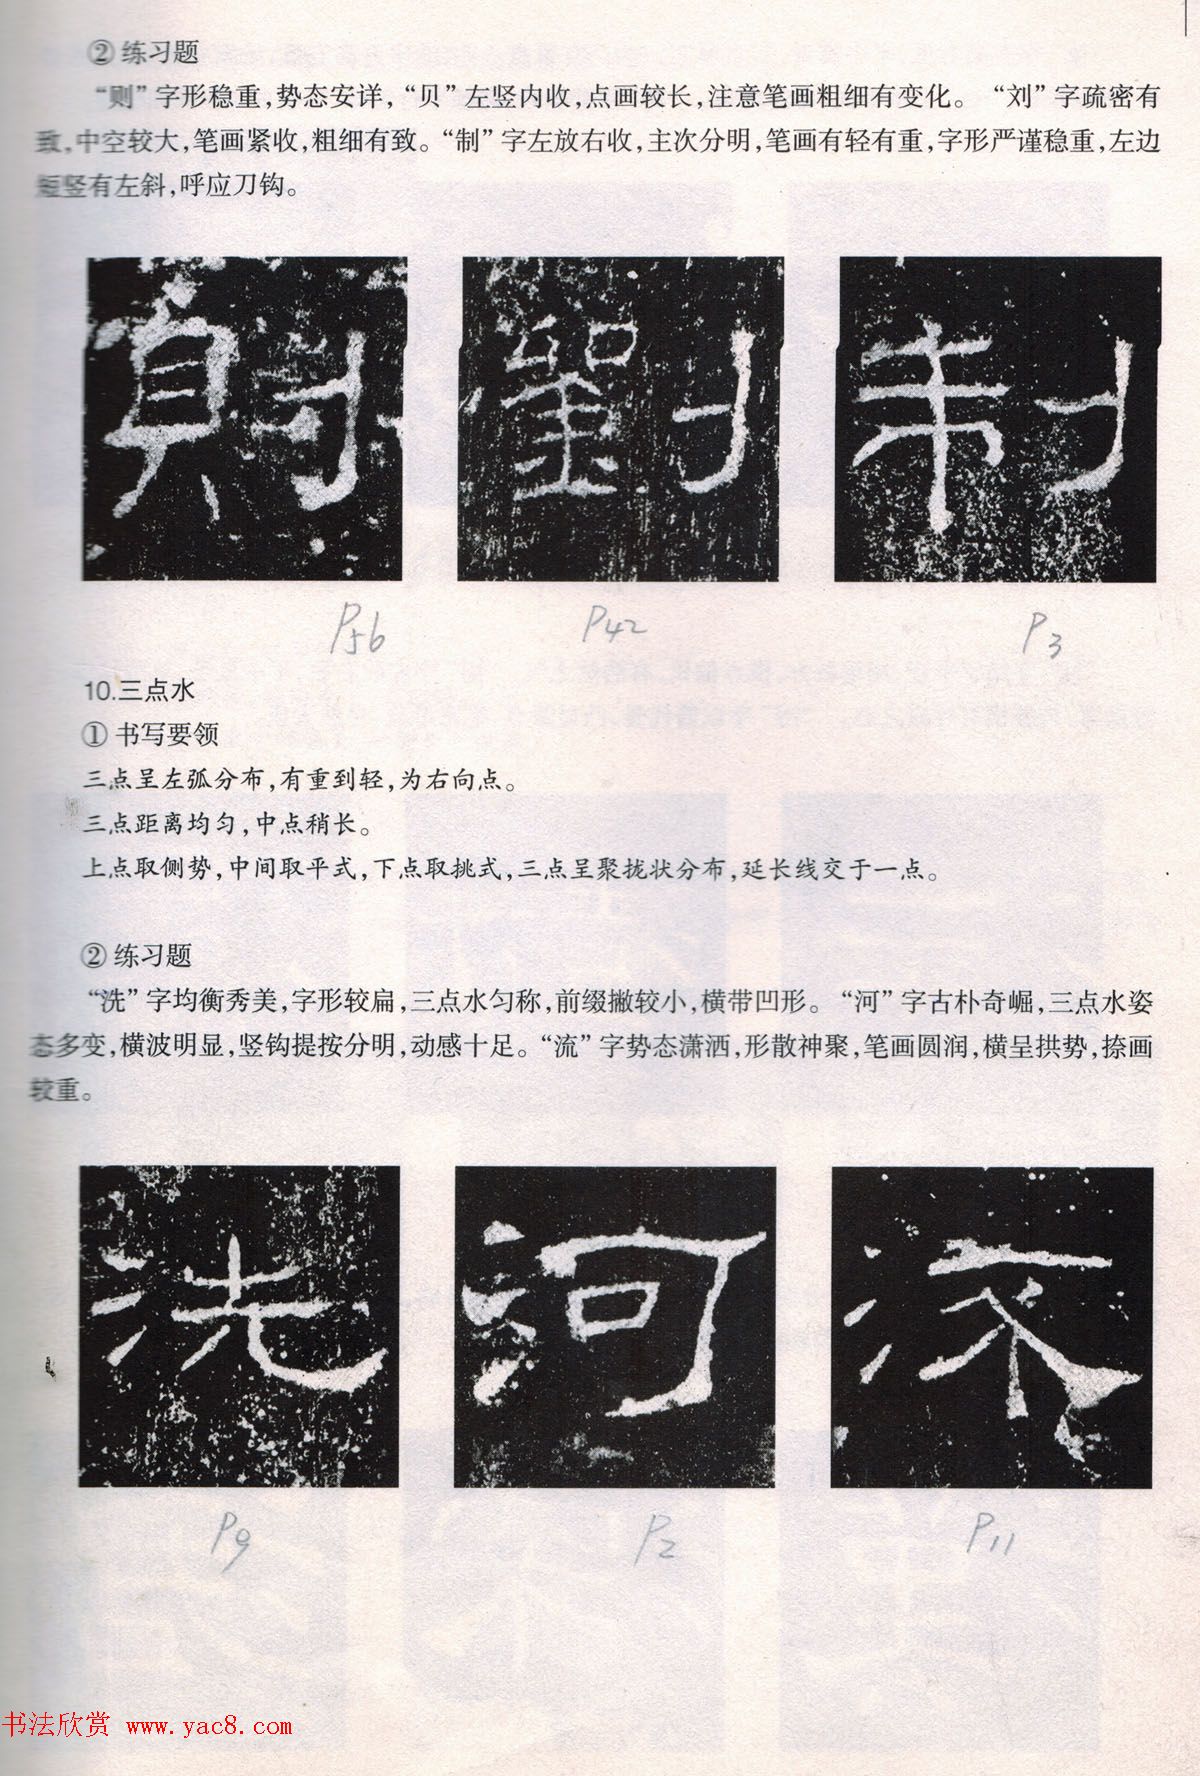 ② 练习题
“则”字形稳重，势态安详，“贝”左竖内收，点画较长，注意笔画粗细有变化。“刘”字疏密有
致，中空较大，笔画紧收，粗细有致。“制”字左放右收，主次分明，笔画有轻有重，字形严谨稳重，左边
短竖有左斜，呼应刀钩。
則 劉 制
P56 P42 P3
10.三点水
① 书写要领
三点呈左弧分布，有重到轻，为右向点。
三点距离均匀，中点稍长。
上点取侧势，中间取平式，下点取挑式，三点呈聚拢状分布，延长线交于一点。
② 练习题
“洗”字均衡秀美，字形较扁，三点水匀称，前缀撇较小，横带凹形。“河”字古朴奇崛，三点水姿
态多变，横波明显，竖钩提按分明，动感十足。“流”字势态潇洒，形散神聚，笔画圆润，横呈拱势，捺画
较重。
洗 河 流
P9 P2 P11
书法欣赏 www.yac8.com